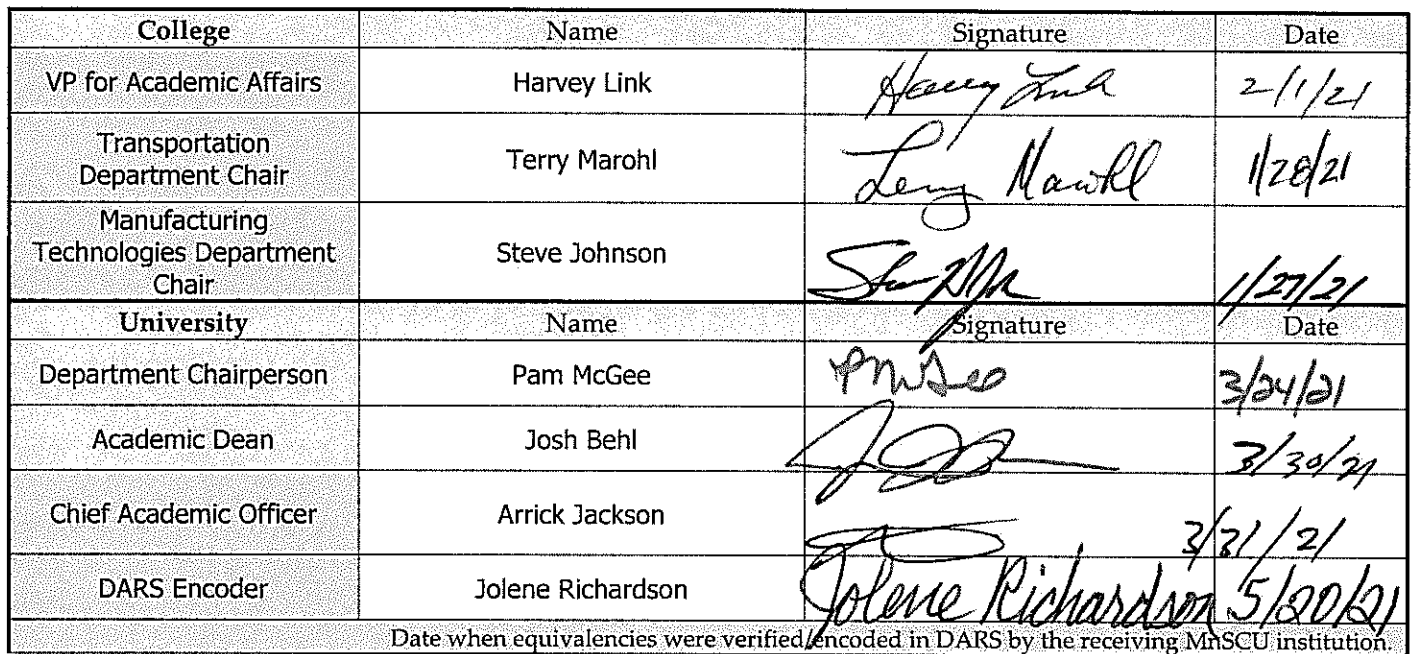 College Name Signature Date
VP for Academic Affairs Harvey Link Harvey Link 2/1/21
Transportation
Department Chair Terry Marohl Terry Marohl 1/28/21
Manufacturing
Technologies Department
Chair Steve Johnson 1/27/21
University Name Signature Date
Department Chairperson Pam McGee PMcGee 3/24/21
Academic Dean Josh Behl 3/30/21
Chief Academic Officer Arrick Jackson 3/31/21
DARS Encoder Jolene Richardson Jolene Richardson 5/20/21
Date when equivalencies were verified/encoded in DARS by the receiving MnSCU institution.